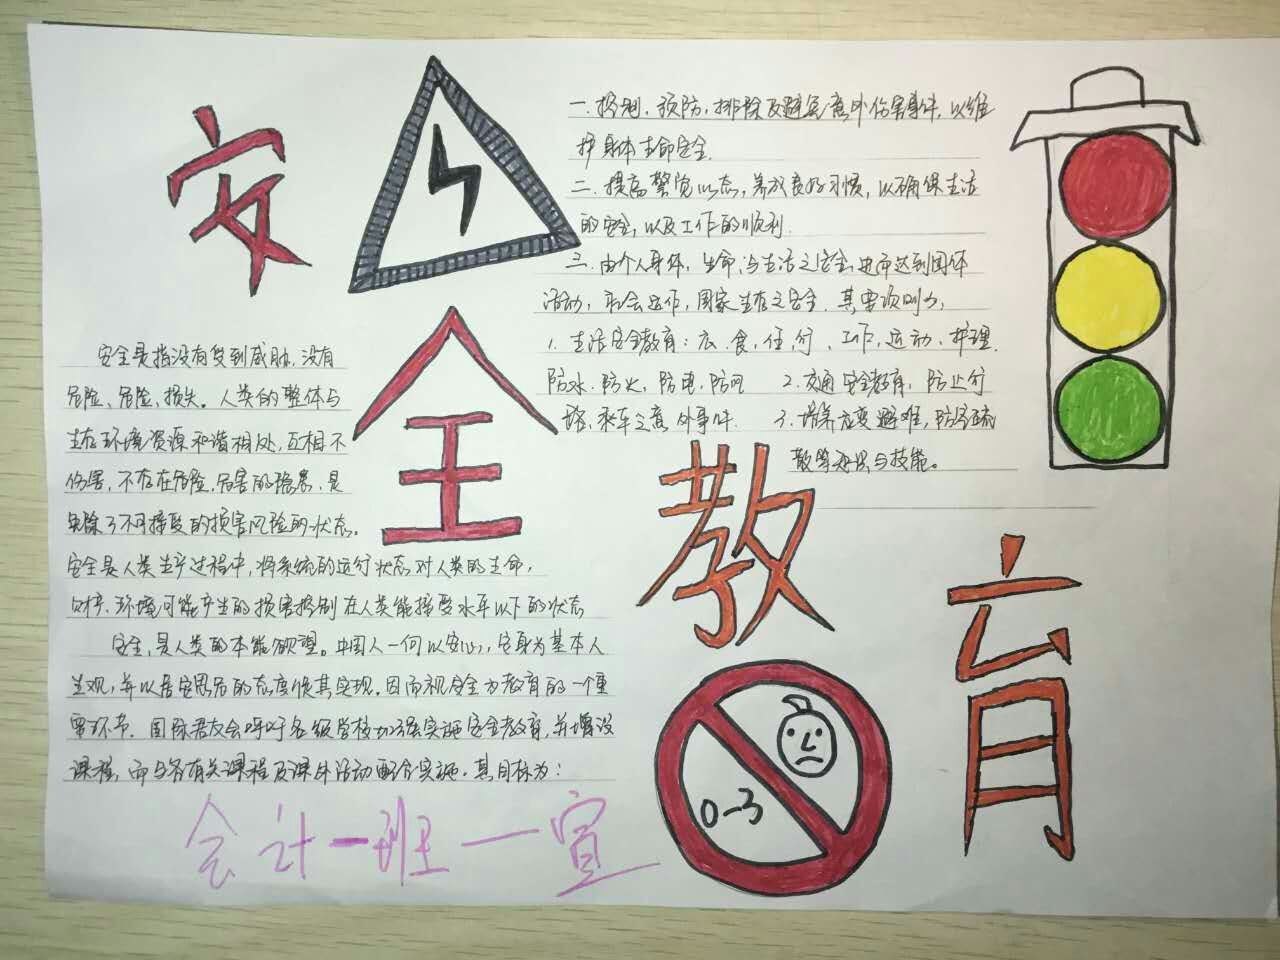 安
全
教
育
安全是指没有受到威胁,没有
危险、危险、损失。人类的整体与
生存环境资源和谐相处,互相不
伤害,不存在危险,危害的隐患,是
免除了不可接受的损害风险的状态。
安全是人类生产过程中,将系统的运行状态对人类的生命,
财产、环境可能产生的损害控制在人类能接受水平以下的状态
安全,是人类的本能欲望。中国人一向以安心,安身为基本人
生观,并以居安思危的态度促其实现,因而视安全为教育的一个重
要环节。国际君友会呼吁各级学校加强实施安全教育,并增设
课程,而与各有关课程及课外活动配合实施。其目标为:
一.控制,预防,排除及避免意外伤害事件,以维
护身体生命安全.
二.提高警觉心态,养成良好习惯,以确保生活
的安全,以及工作的顺利.
三.由个人身体,生命,与生活之安全,进而达到团体
活动,社会运作,国家生存之安全.其要项则为,
1.生活安全教育:衣.食,住,行、工作,运动,护理.
防水.防火,防电,防风 2.交通安全教育,防止行
路,乘车之意外事件. 3.培养应变避难,防

散等知识与技能。
0-3
会计一班一宣